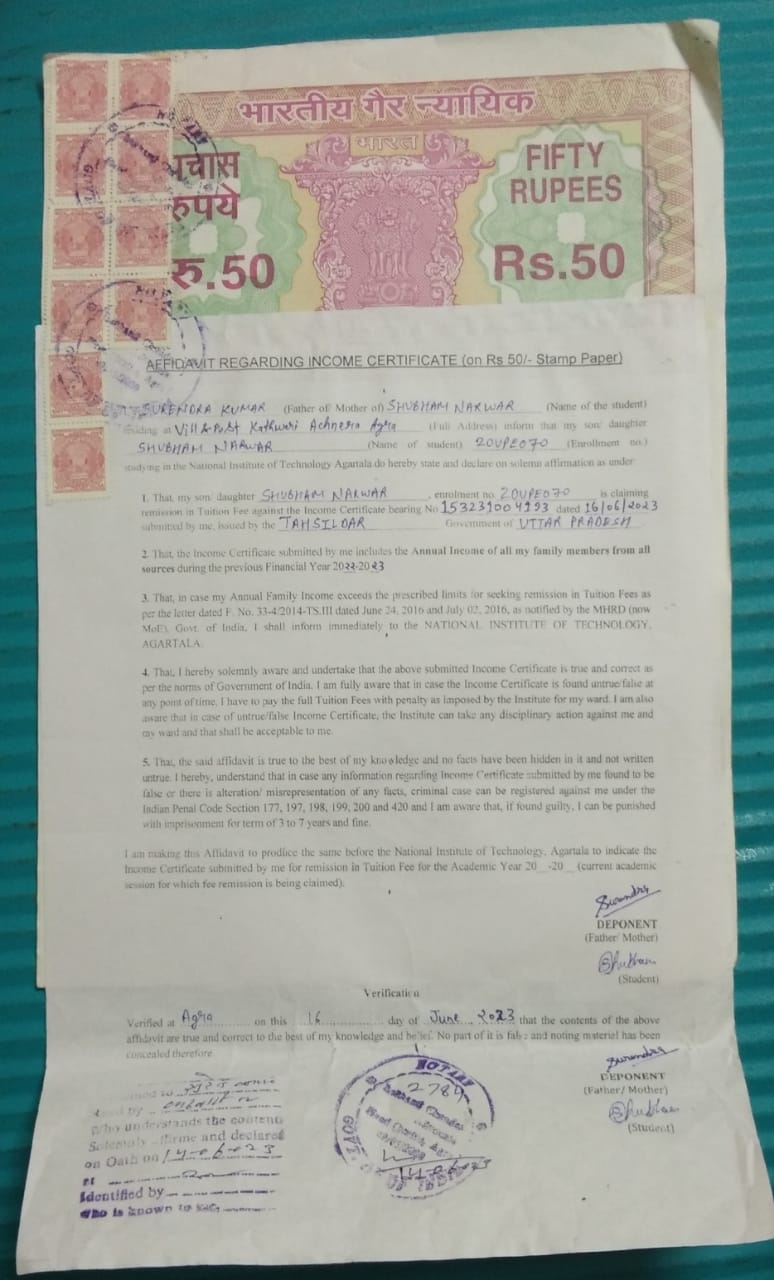 भारतीय गैर न्यायिक
भारत
पचास
रुपये
रु.50
FIFTY
RUPEES
Rs.50
AFFIDAVIT REGARDING INCOME CERTIFICATE (on Rs 50/- Stamp Paper)
SURENDRA KUMAR (Father of/ Mother of) SHUBHAM NARWAR (Name of the student)
residing at Vill & Post Kathwari Achnera Agra (Full Address) inform that my son/ daughter
SHUBHAM NARWAR (Name of student) 20UPE070 (Enrollment no.)
studying in the National Institute of Technology Agartala do hereby state and declare on solemn affirmation as under
1. That, my son/ daughter SHUBHAM NARWAR, enrolment no. 20UPE070 is claiming
remission in Tuition Fee against the Income Certificate bearing No 153231004193 dated 16/06/2023
submitted by me, issued by the TAHSILDAR Government of UTTAR PRADESH
2. That, the Income Certificate submitted by me includes the Annual Income of all my family members from all
sources during the previous Financial Year 2022-2023
3. That, in case my Annual Family Income exceeds the prescribed limits for seeking remission in Tuition Fees as
per the letter dated F. No. 33-4/2014-TS.III dated June 24, 2016 and July 02, 2016, as notified by the MHRD (now
MoE), Govt. of India, I shall inform immediately to the NATIONAL INSTITUTE OF TECHNOLOGY,
AGARTALA.
4. That, I hereby solemnly aware and undertake that the above submitted Income Certificate is true and correct as
per the norms of Government of India. I am fully aware that in case the Income Certificate is found untrue/false at
any point of time, I have to pay the full Tuition Fees with penalty as imposed by the Institute for my ward. I am also
aware that in case of untrue/false Income Certificate, the Institute can take any disciplinary action against me and
my ward and that shall be acceptable to me.
5. That, the said affidavit is true to the best of my knowledge and no facts have been hidden in it and not written
untrue. I hereby, understand that in case any information regarding Income Certificate submitted by me found to be
false or there is alteration/ misrepresentation of any facts, criminal case can be registered against me under the
Indian Penal Code Section 177, 197, 198, 199, 200 and 420 and I am aware that, if found guilty, I can be punished
with imprisonment for term of 3 to 7 years and fine.
I am making this Affidavit to produce the same before the National Institute of Technology, Agartala to indicate the
Income Certificate submitted by me for remission in Tuition Fee for the Academic Year 20__-20__ (current academic
session for which fee remission is being claimed).
Surendra
DEPONENT
(Father/ Mother)
Shubham
(Student)
Verification
Verified at Agra on this 16 day of June 2023 that the contents of the above
affidavit are true and correct to the best of my knowledge and belief. No part of it is false and noting material has been
concealed therefore.
Surendra
DEPONENT
(Father/ Mother)
Shubham
(Student)
who understands the content
Solemnly affirme and declared
on Oath on 14-06-023
at
Identified by
who is known to me
NOTARY
2784
Advocate
GOVT OF INDIA
14-06-023